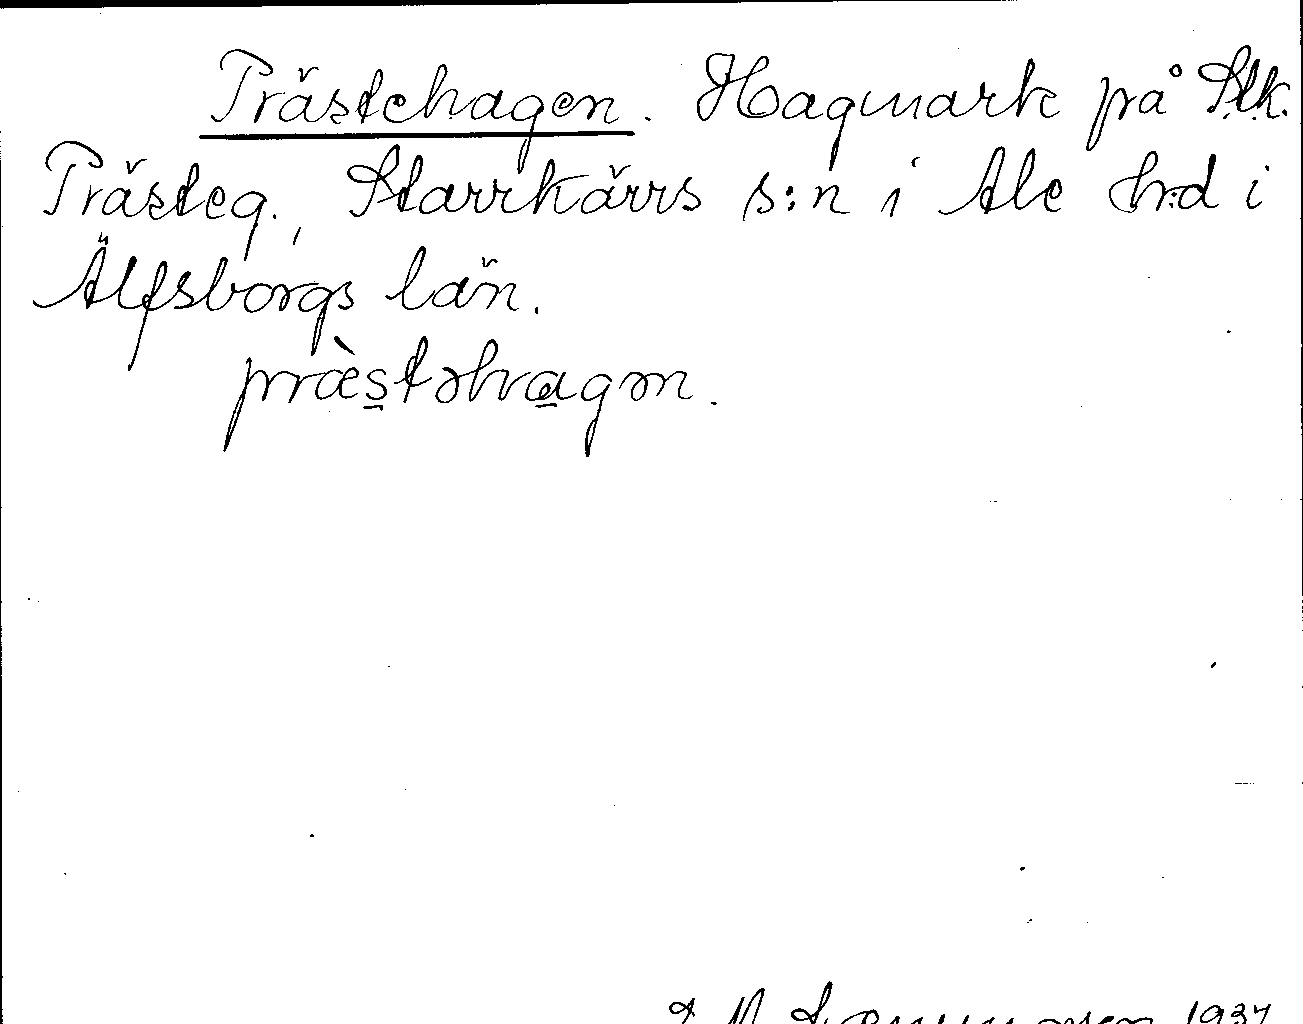 Prästehagen. Hagmark på St.k.
Prästeg., Starrkärrs s:n i Ale h:d i
Älfsborgs län.
præ̀stəhagən.
1937